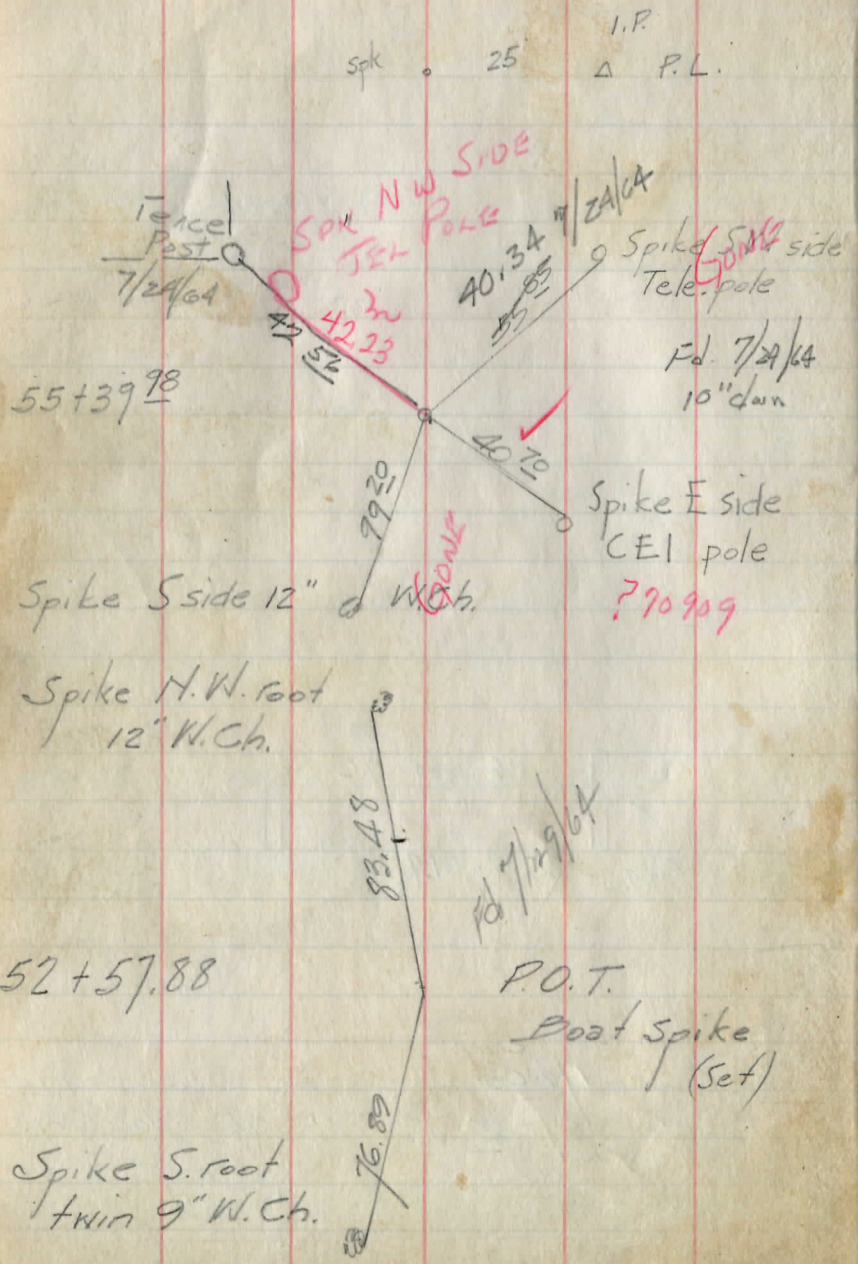 I.P.
spk 25 P.L.
Fence
Post
7/24/64
Spk N W SIDE
TEL POLE
42 52
42.23
40.34 7/24/64
55 85
Spike side
Tele. pole
GONE
Fd. 7/24/64
10" dwn
55+39 98
40 70
99 20
Spike E side
CEI pole
? 70909
Spike S side 12" W.Ch.
GONE
Spike N.W. root
12" W.Ch.
83.48
Fd 7/29/64
52+57.88
P.O.T.
Boat Spike
(Set)
76.89
Spike S. root
twin 9" W.Ch.